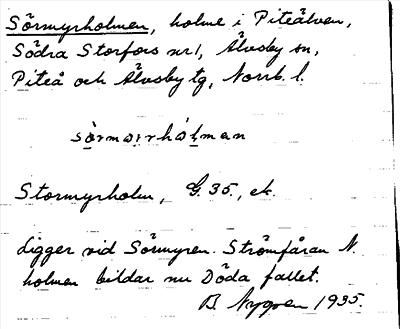 Sörmyrholmen, holme i Piteälven,
Södra Storfors nr 1, Älvsby sn,
Piteå och Älvsby tg, Norrb. l.
Stormyrholm, G. 35., ek.
Ligger vid Sörmyren. Strömfåran N.
holmen bildar nu Döda fallet.
B. Nygren 1935.